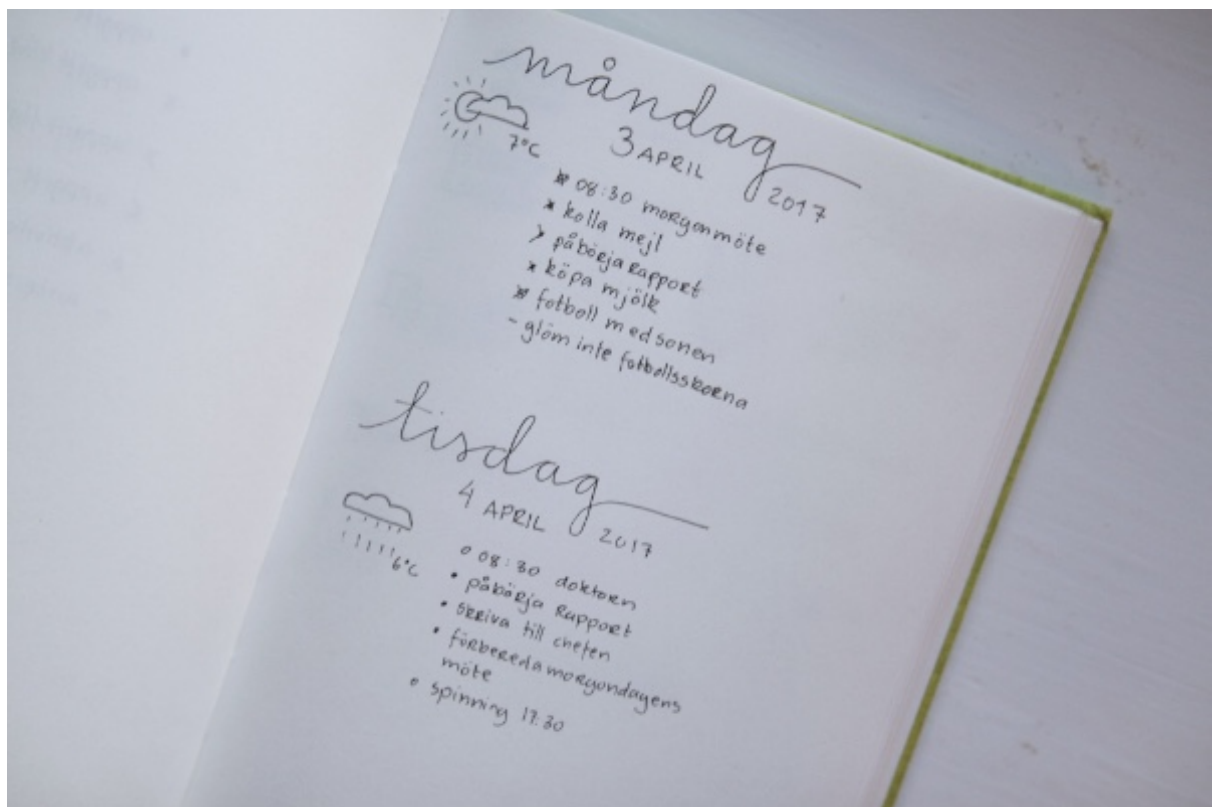 måndag
3 APRIL 2017
7°C
08:30 morgonmöte
kolla mejl
> påbörja rapport
köpa mjölk
fotboll med sonen
- glöm inte fotbollsskorna
tisdag
4 APRIL 2017
6°C
o 08:30 doktorn
• påbörja rapport
• skriva till chefen
• förbereda morgondagens
möte
o spinning 17:30